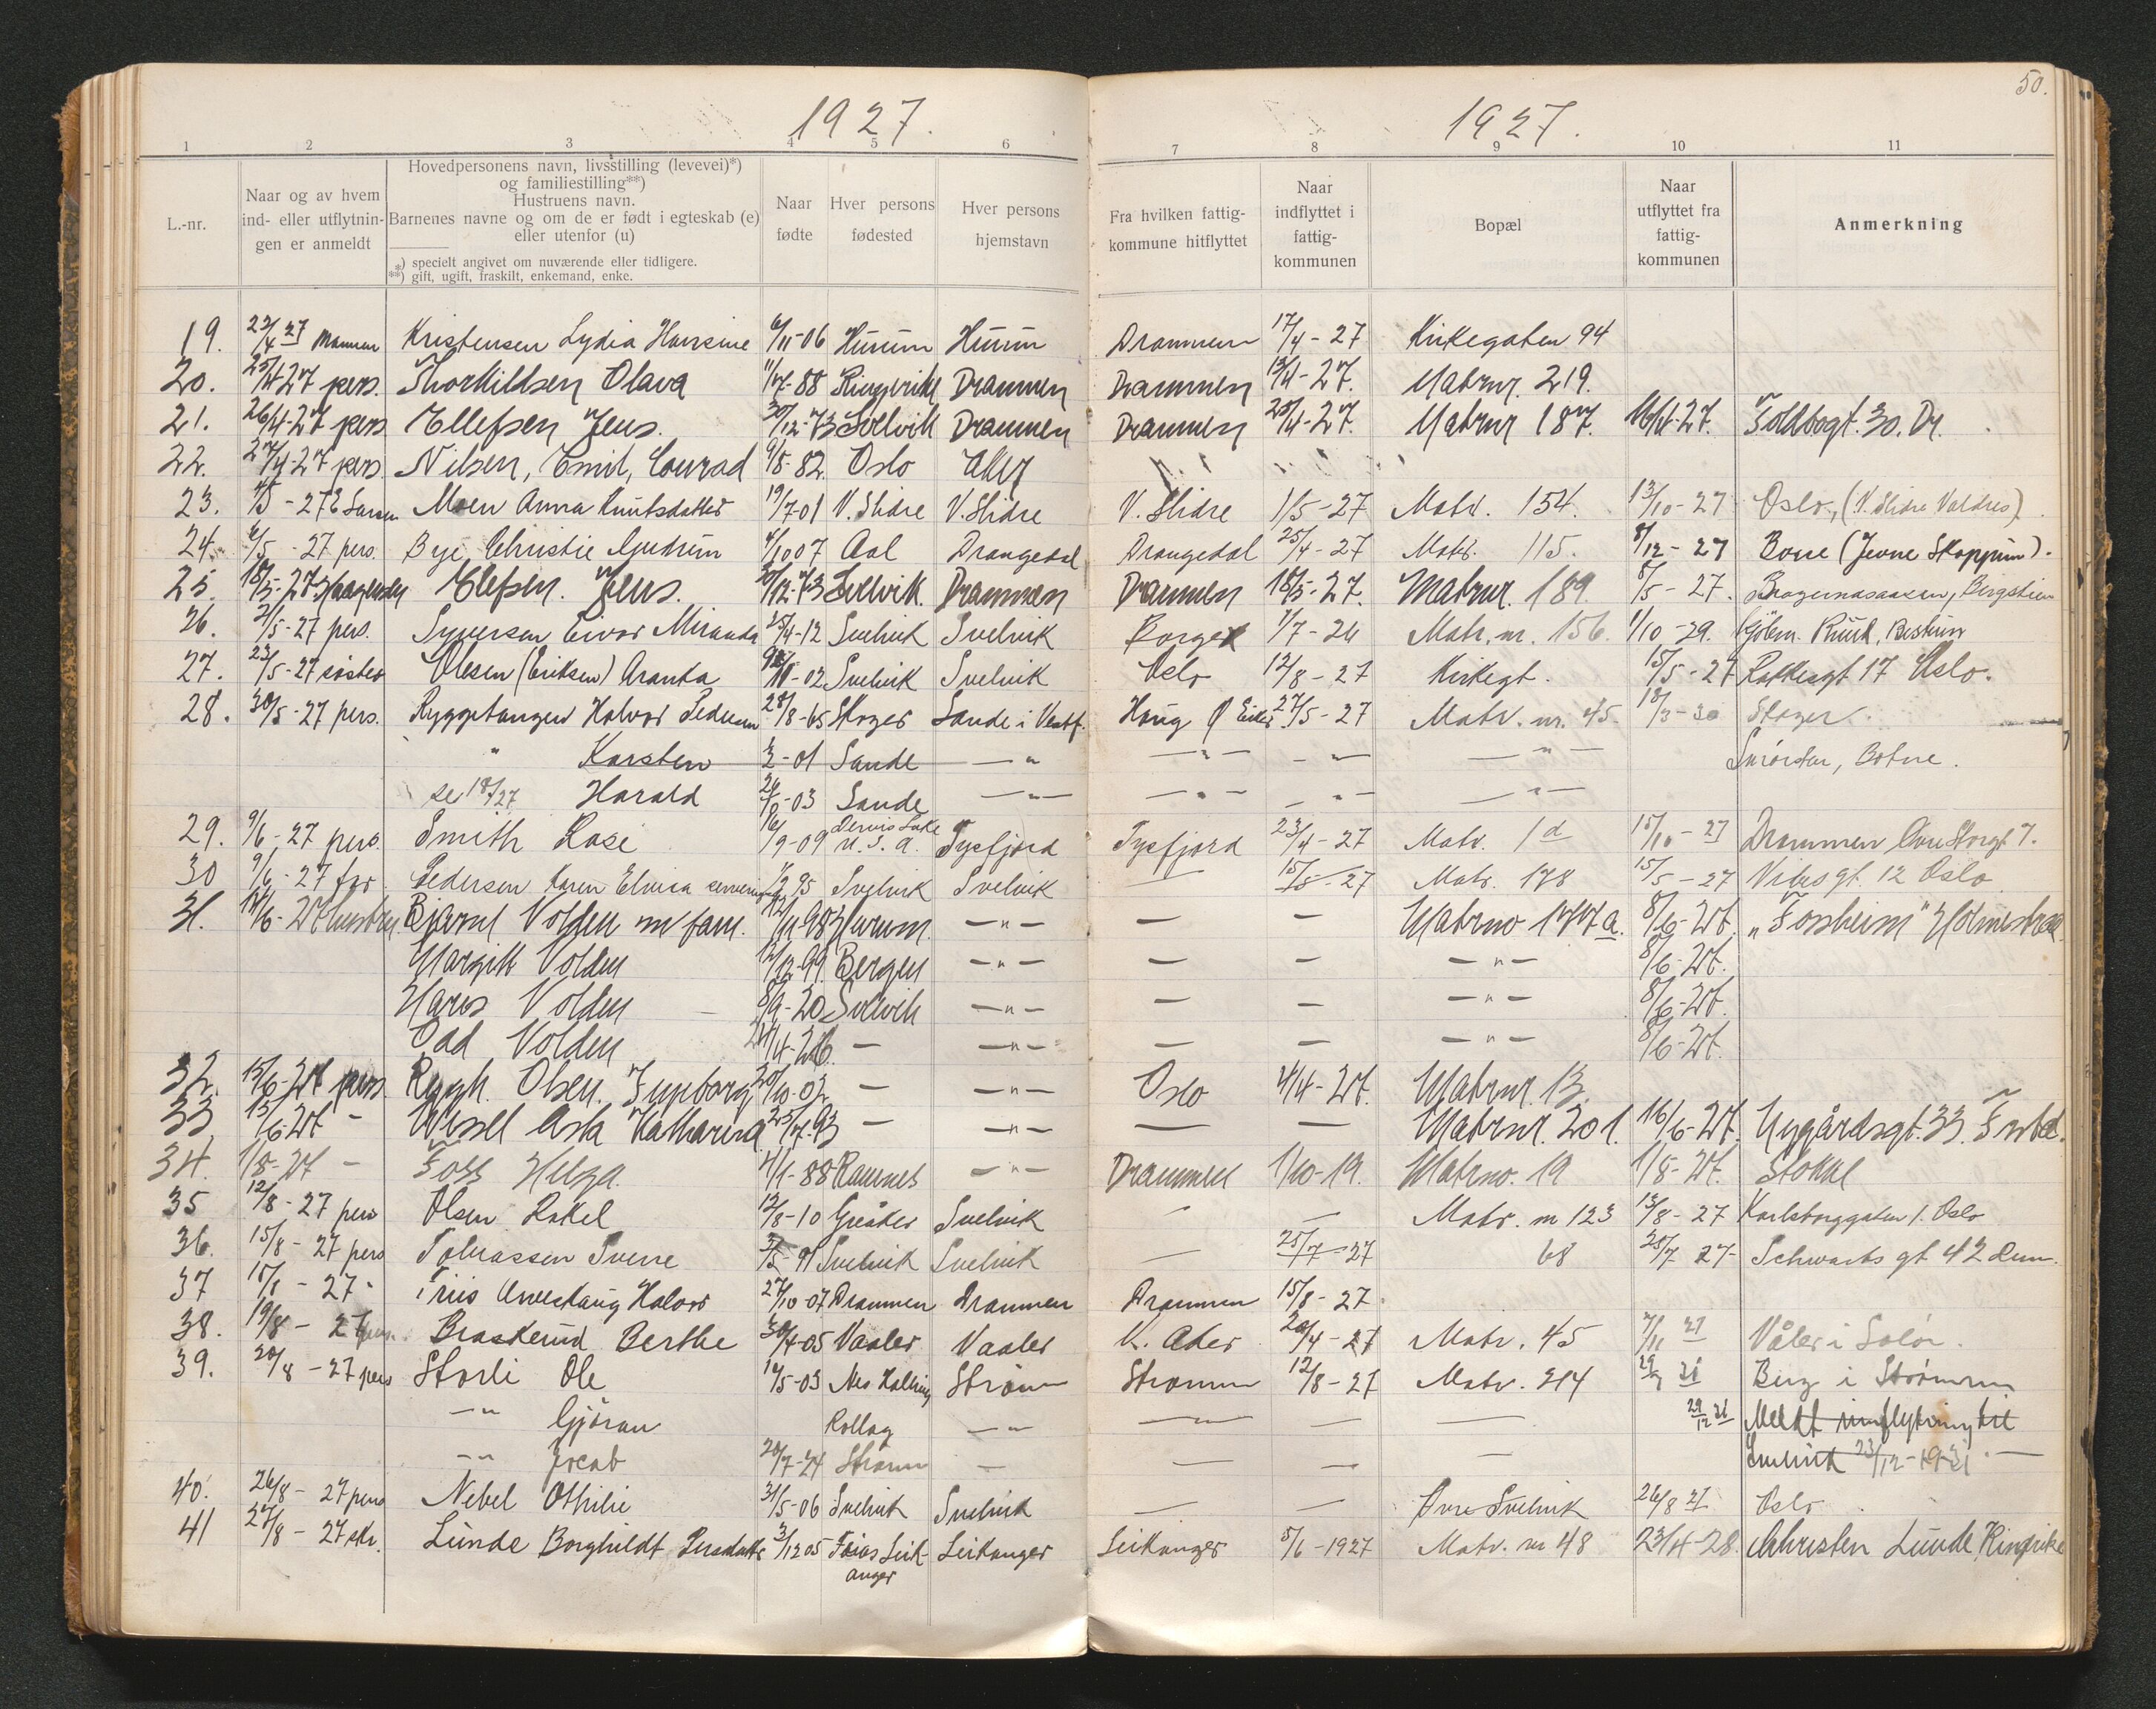 50.
1927.
1927.
1 2 3 4 5 6 7 8 9 10 11
L.-nr.
Naar og av hvem
ind- eller utflytnin-
gen er anmeldt
Hovedpersonens navn, livsstilling (levevei)*)
og familiestilling**)
Hustruens navn.
Barnenes navne og om de er født i egteskab (e)
eller utenfor (u)
*) specielt angivet om nuværende eller tidligere.
**) gift, ugift, fraskilt, enkemand, enke.
Naar
fødte
Hver persons
fødested
Hver persons
hjemstavn
Fra hvilken fattig-
kommune hitflyttet
Naar
indflyttet i
fattig-
kommunen
Bopæl
Naar
utflyttet fra
fattig-
kommunen
Anmerkning
19. 22/4 27 Mannen Kristensen Lydia Hansine 6/11-06 Hurum Hurum Drammen 17/4-27 Kirkegaten 94
20. 25/4-27 pers. Thorkildsen Olava 11/7-88 Ringerike Drammen Drammen 13/4-27. Matrnr. 219.
21. 26/4-27 pers Ellefsen Jens. 30/12-73 Svelvik Drammen Drammen 25/4-27. Matrnr 187. 16/4-27. Toldbogt. 30. Dr.
22. 27/4-27 pers. Nilsen, Emil, Conrad 9/8-82. Oslo Aker
23. 4/5-27 E Larsen Moen Anna Knutsdatter 19/7-01 V. Slidre V. Slidre V. Slidre 1/5-27 Matr. 154. 13/10-27 Oslo, (V. Slidre Valdres).
24. 6/5-27 pers. Bye, Christie Gudrun 4/10 07 Aal Drangedal Drangedal 25/4-27 Matr. 115. 8/12-27 Borre (Jevne Skoppum).
25. 18/5-27 Haagensen Elefsen. Jens. 30/12-73 Svelvik. Drammen Drammen 18/5-27. Matrnr. 189. 8/5-27. Bragernesaasen, Bergstien
26. 21/5-27 pers. Syversen Eivor Miranda 25/4-12 Svelvik Svelvik Borge 1/7-26 Matr. nr. 156. 1/10-29.
27. 23/5-27 søster Olsen (Eriksen) Aranka -02 Svelvik Svelvik Oslo 12/8-27 Kirkegt. 15/5-27 Rathkesgt 17 Oslo.
28. 30/5-27 pers. Ryggetangen Halvor Pedersen 28/8-65 Skoger Sande i Vestf. Haug Ø Eiker 27/5-27 Matr. nr. 45. 18/3-30 Skoger.
" Karsten 3/2-01 Sande —"— —"— —"— —"— Snørsten, Botne.
se 18/27 Harald -03 Sande —"— —"— —"— —"—
29. 9/6-27 pers. Smith Rose 16/9-09 U.S.A. Tysfjord Tysfjord 23/4-27 Matr. 1 d 15/10-27 Drammen Øvre Storgt 7.
30 9/6-27 far Pedersen Karen Elvira 95 Svelvik Svelvik — 15/5-27 Matr. 178 15/5-27 Vibes gt. 12 Oslo
31. 14/6-27 hustru. Bjarne Volden m/ fam. 12/11-98 Hurum. —"— — — Matrno 177 a. 8/6-27. "Fossheim" Holmestrand
Margit Volden 12/12-99. Bergen —"— — — —"— 8/6-27.
Hans Volden 8/9-20 Svelvik —"— — — —"— 8/6-27.
Odd Volden 24/4-26. — —"— — — —"— 8/6-27.
32. 15/6-27 pers. Rygh. Olsen. Ingeborg 20/10-02 — —"— Oslo 4/4-27. Matrnr. 13.
33 15/6-27 - Wessel Asta Katharina 25/7-93 — —"— — — Matrnr. 201. 16/6-27. Nygårdsgt. 33. F.stad.
34. 1/8-27 - Foss Helga. 4/1-88 Ramnes —"— Drammen 1/10-19. Matrno. 19 1/8-27. Stokke
35 12/8-27 pers Olsen Rakel 12/8-10 Greåker Svelvik — — Matr. nr 123 13/8-27 Karlsborggaten 1. Oslo
36. 15/8-27 pers Tobiassen Sverre 3/5-91 Svelvik Svelvik — 25/7-27 68 25/7 27- Schwarts gt 42 Drm.
37 18/8-27- Friis Unnestaug Halvor 27/10-07 Drammen Drammen Drammen 15/8-27
38. 19/8-27 pers. Braskerud Berthe 30/4-05 Vaaler Vaaler V. Aker 20/4-27 Matr. 45 7/11 27 Våler i Solør.
39. 20/8-27 pers Storli Ole 14/5-03 Nes Halling Strømm Strømm 12/8-27 Matr. 214 Berg i Strømm
—"— Gjøran Rollag —"— — — — 29/12 31 Meldt innflytning til
—"— Jocab 20/7-24 Strømm — — — — Svelvik 23/12-1931. —
40. 26/8-27 pers Nebel Othilie 31/5-06 Svelvik Svelvik — — Øvre Svelvik 26/8 27. Oslo.
41 27/8-27 skr. Lunde Borghildt Larsdatter 3/12 05 Leik-
anger Leikanger Leikanger 5/6-1927 Matr. nr 48 23/4-28. Christen Lunde, Ringrike